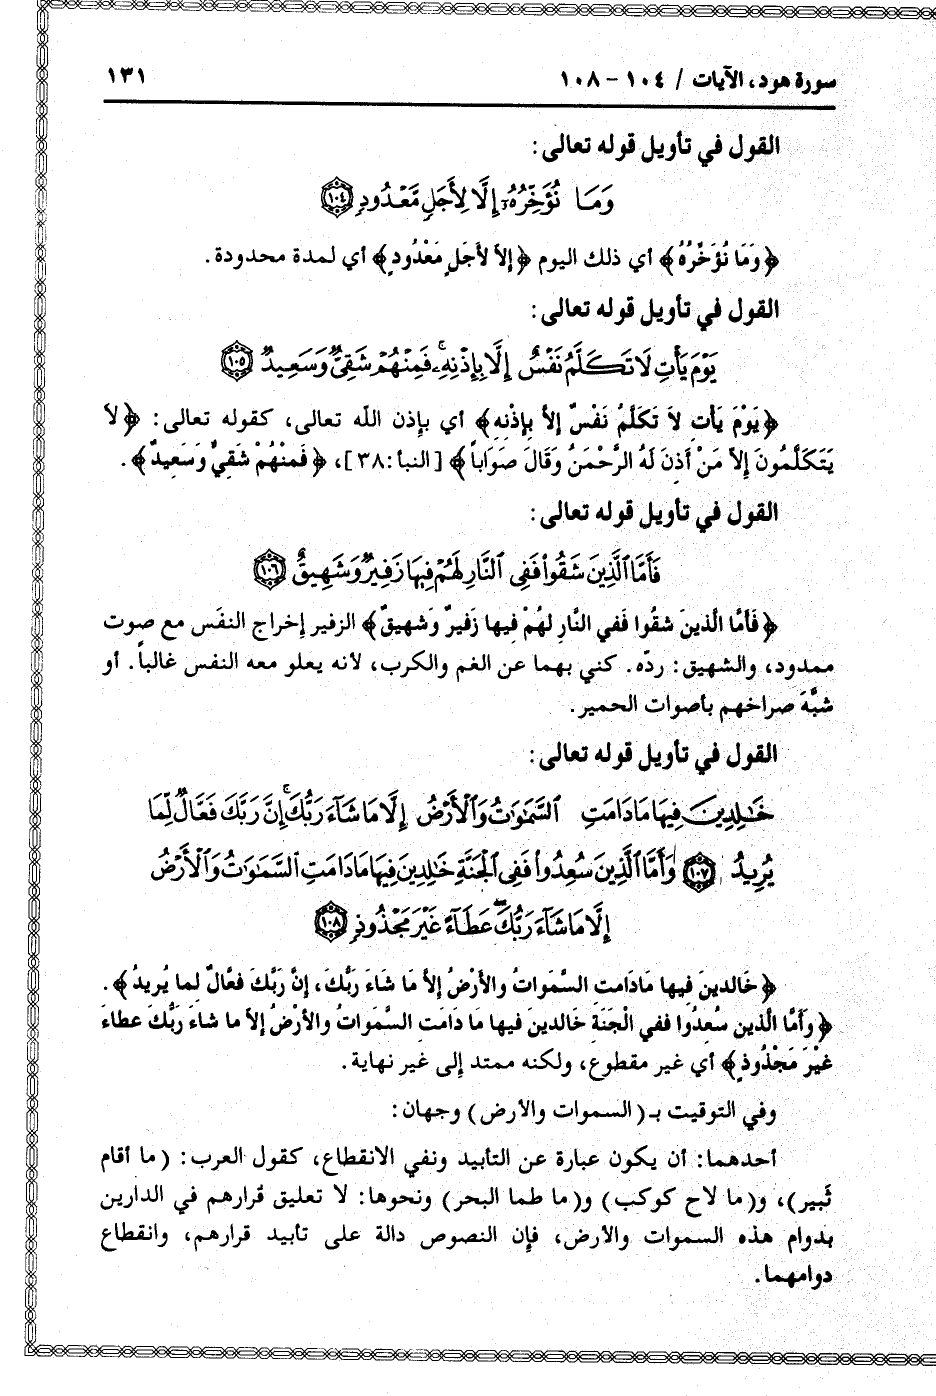 سورة هود، الآيات / ١٠٤ - ١٠٨ ١٣١
القول في تأويل قوله تعالى:
وَمَا نُؤَخِّرُهُۥٓ إِلَّا لِأَجَلٍ مَّعْدُودٍ ١٠٤
﴿وَمَا نُؤَخِّرُهُ﴾ أي ذلك اليوم ﴿إِلاَّ لأَجَلٍ مَعْدُودٍ﴾ أي لمدة محدودة.
القول في تأويل قوله تعالى:
يَوْمَ يَأْتِ لَا تَكَلَّمُ نَفْسٌ إِلَّا بِإِذْنِهِۦۚ فَمِنْهُمْ شَقِىٌّ وَسَعِيدٌ ١٠٥
﴿يَوْمَ يَأْتِ لاَ تَكَلَّمُ نَفْسٌ إِلاَّ بِإِذْنِهِ﴾ أي بإذن اللّه تعالى، كقوله تعالى: ﴿لاَ
يَتَكَلَّمُونَ إِلاَّ مَنْ أَذِنَ لَهُ الرَّحْمَنُ وَقَالَ صَوَاباً﴾ [النبأ:٣٨]، ﴿فَمِنْهُمْ شَقِيٌّ وَسَعِيدٌ﴾.
القول في تأويل قوله تعالى:
فَأَمَّا ٱلَّذِينَ شَقُوا۟ فَفِى ٱلنَّارِ لَهُمْ فِيهَا زَفِيرٌ وَشَهِيقٌ ١٠٦
﴿فَأَمَّا الَّذِينَ شَقُوا فَفِي النَّارِ لَهُمْ فِيها زَفِيرٌ وَشَهِيقٌ﴾ الزفير إخراج النفَس مع صوت
ممدود، والشهيق: ردّه. كني بهما عن الغم والكرب، لأنه يعلو معه النفس غالباً. أو
شبَّه صراخهم بأصوات الحمير.
القول في تأويل قوله تعالى:
خَٰلِدِينَ فِيهَا مَا دَامَتِ ٱلسَّمَٰوَٰتُ وَٱلْأَرْضُ إِلَّا مَا شَآءَ رَبُّكَۚ إِنَّ رَبَّكَ فَعَّالٌ لِّمَا
يُرِيدُ ١٠٧ وَأَمَّا ٱلَّذِينَ سُعِدُوا۟ فَفِى ٱلْجَنَّةِ خَٰلِدِينَ فِيهَا مَا دَامَتِ ٱلسَّمَٰوَٰتُ وَٱلْأَرْضُ
إِلَّا مَا شَآءَ رَبُّكَۖ عَطَآءً غَيْرَ مَجْذُوذٍ ١٠٨
﴿خَالدِينَ فِيها مَادَامَتِ السَّمَوَاتُ والأَرْضُ إِلاَّ مَا شَاءَ رَبُّكَ، إِنَّ رَبَّكَ فَعَّالٌ لِما يُرِيدُ﴾.
﴿وَأَمَّا الَّذِينَ سُعِدُوا فَفِي الْجَنَةِ خَالِدِينَ فِيها مَا دَامَتِ السَّمَوَاتُ والأَرْضُ إِلاَّ ما شاءَ رَبُّكَ عطاءً
غَيْرَ مَجْذُوذٍ﴾ أي غير مقطوع، ولكنه ممتد إلى غير نهاية.
وفي التوقيت بـ (السموات والأرض) وجهان:
أحدهما: أن يكون عبارة عن التأبيد ونفي الانقطاع، كقول العرب: (ما أقام
ثَبير)، و(ما لاح كوكب) و(ما طما البحر) ونحوها: لا تعليق قرارهم في الدارين
بدوام هذه السموات والأرض، فإن النصوص دالة على تأبيد قرارهم، وانقطاع
دوامهما.